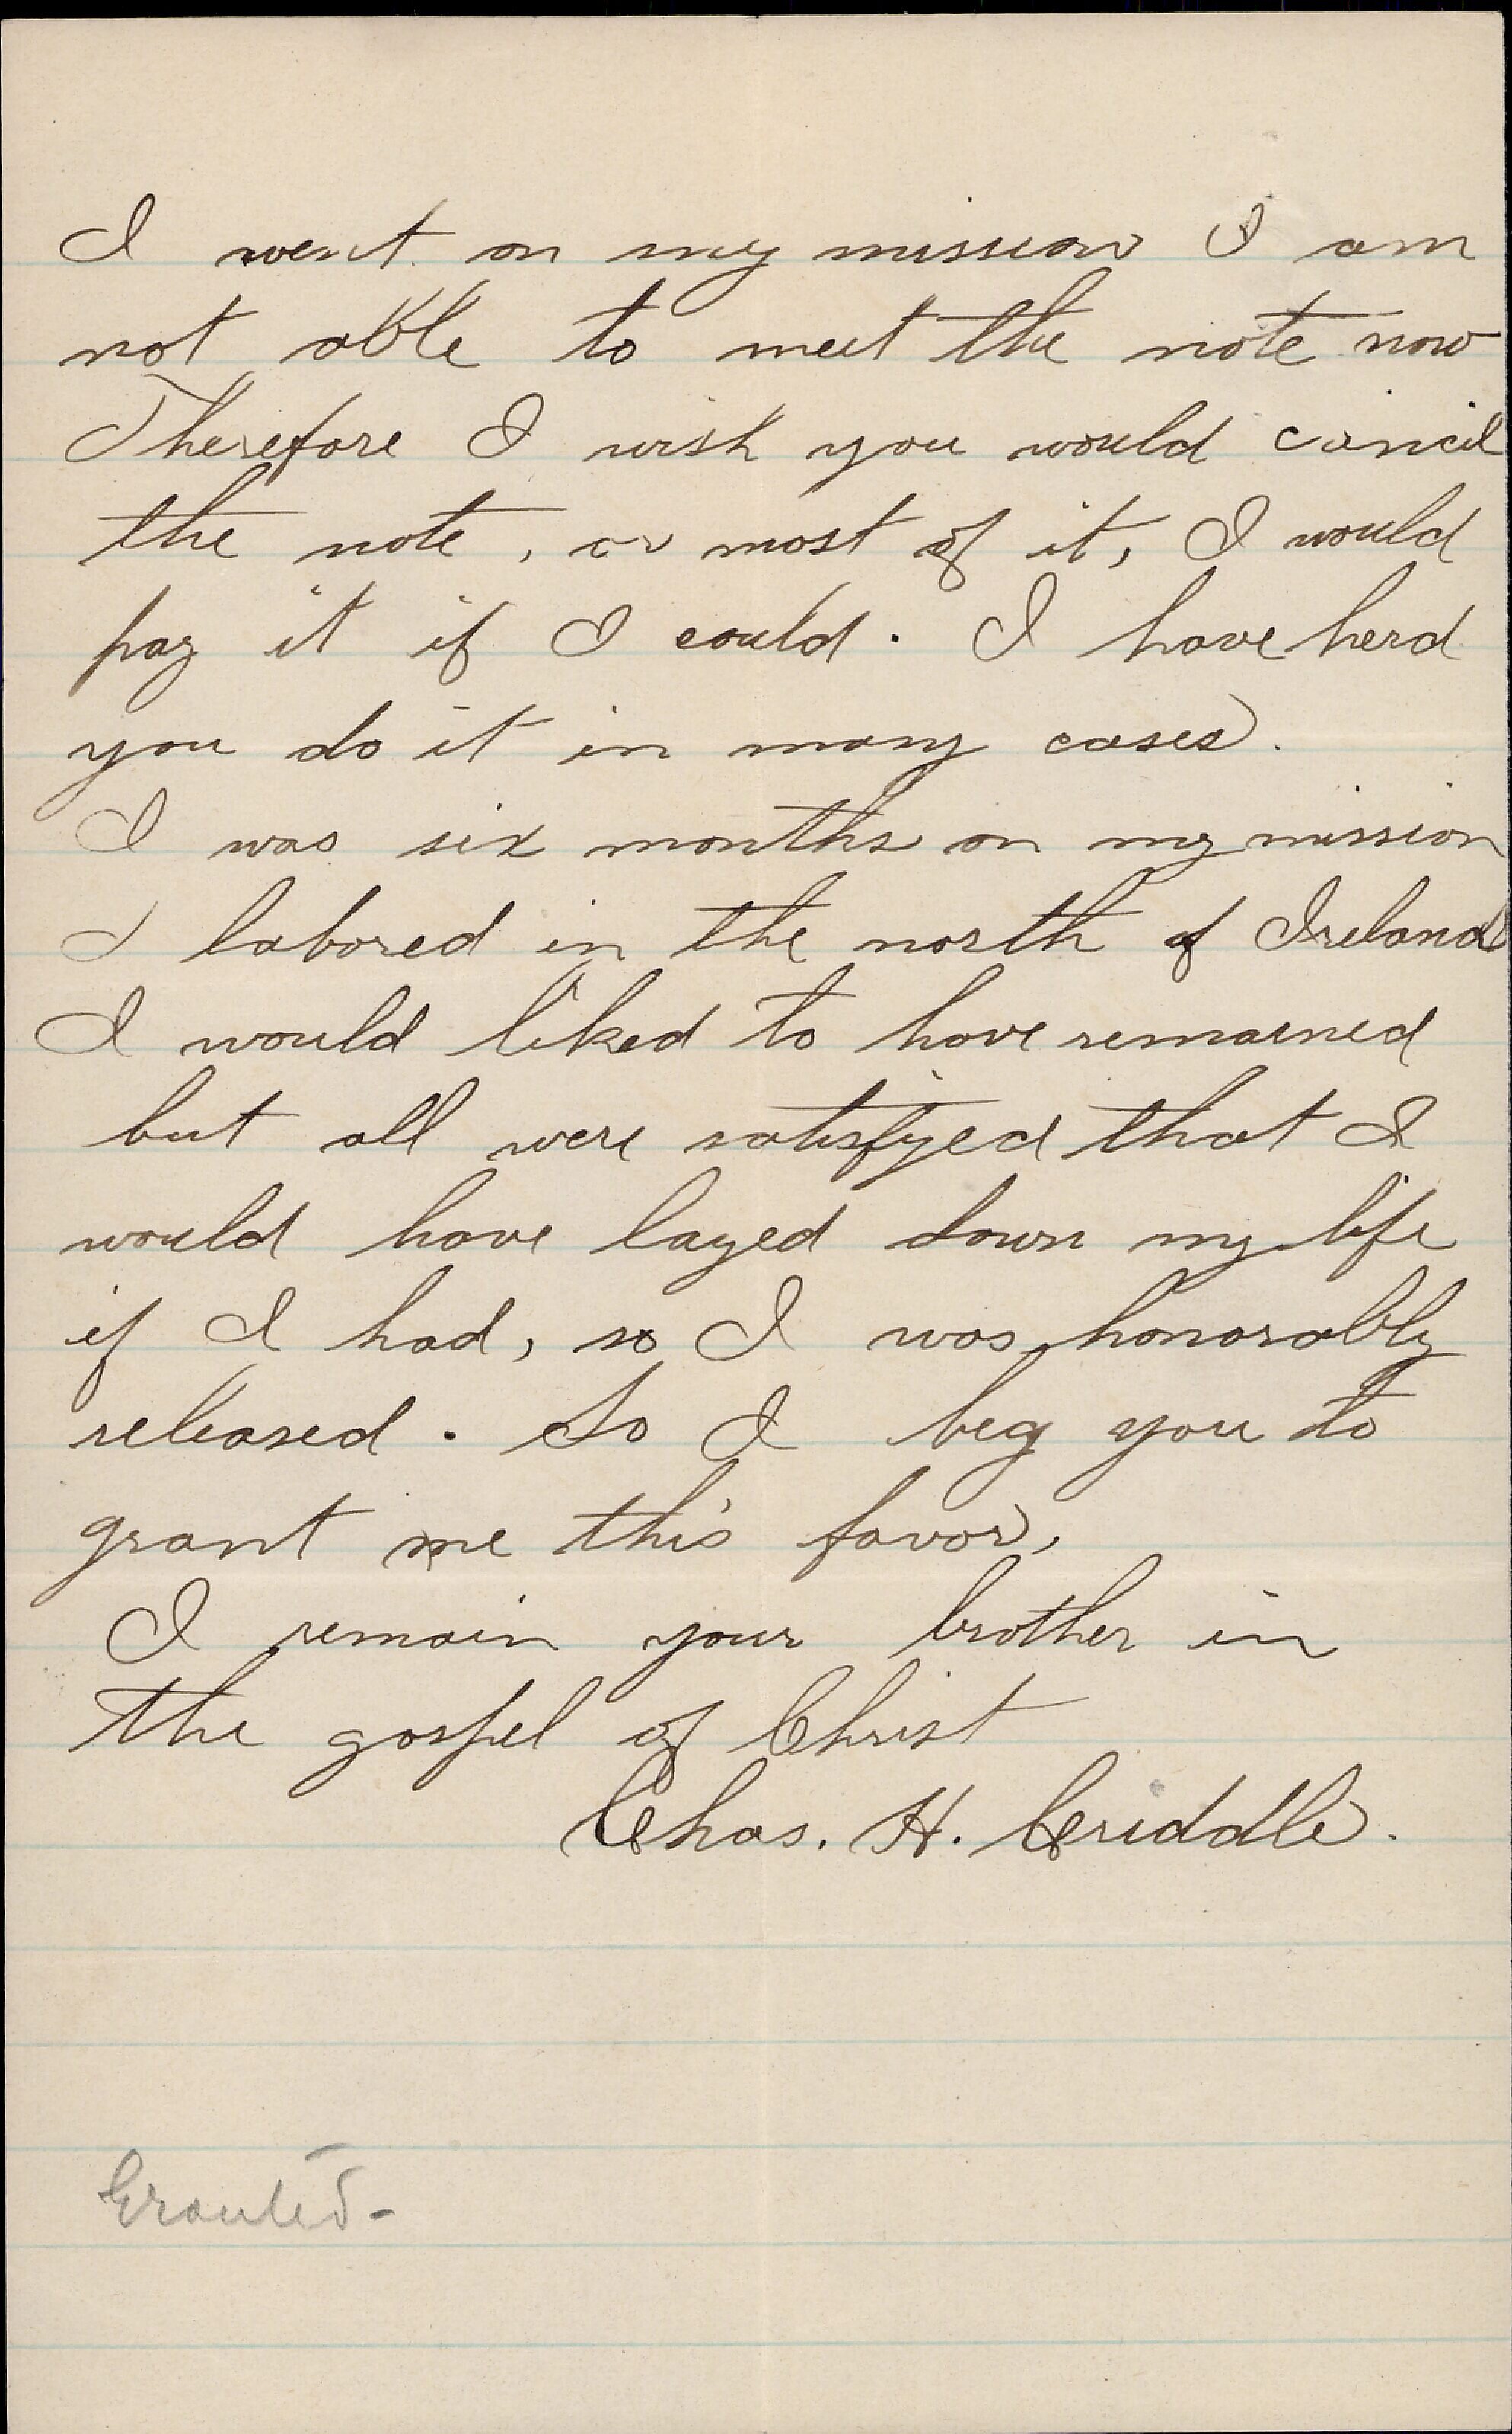 I went on my mission I am
not able to meet the note now
Therefore I wish you would cancil
the note, or most of it, I would
pay it if I could. I have herd
you do it in many cases.
I was six months on my mission
I labored in the north of Ireland
I would liked to have remained
but all were satisfyed that I
would have layed down my life
if I had, so I was honorably
released. So I beg you to
grant me this favor,
I remain your brother in
the gospel of Christ
Chas. H. Criddle.
Granted-